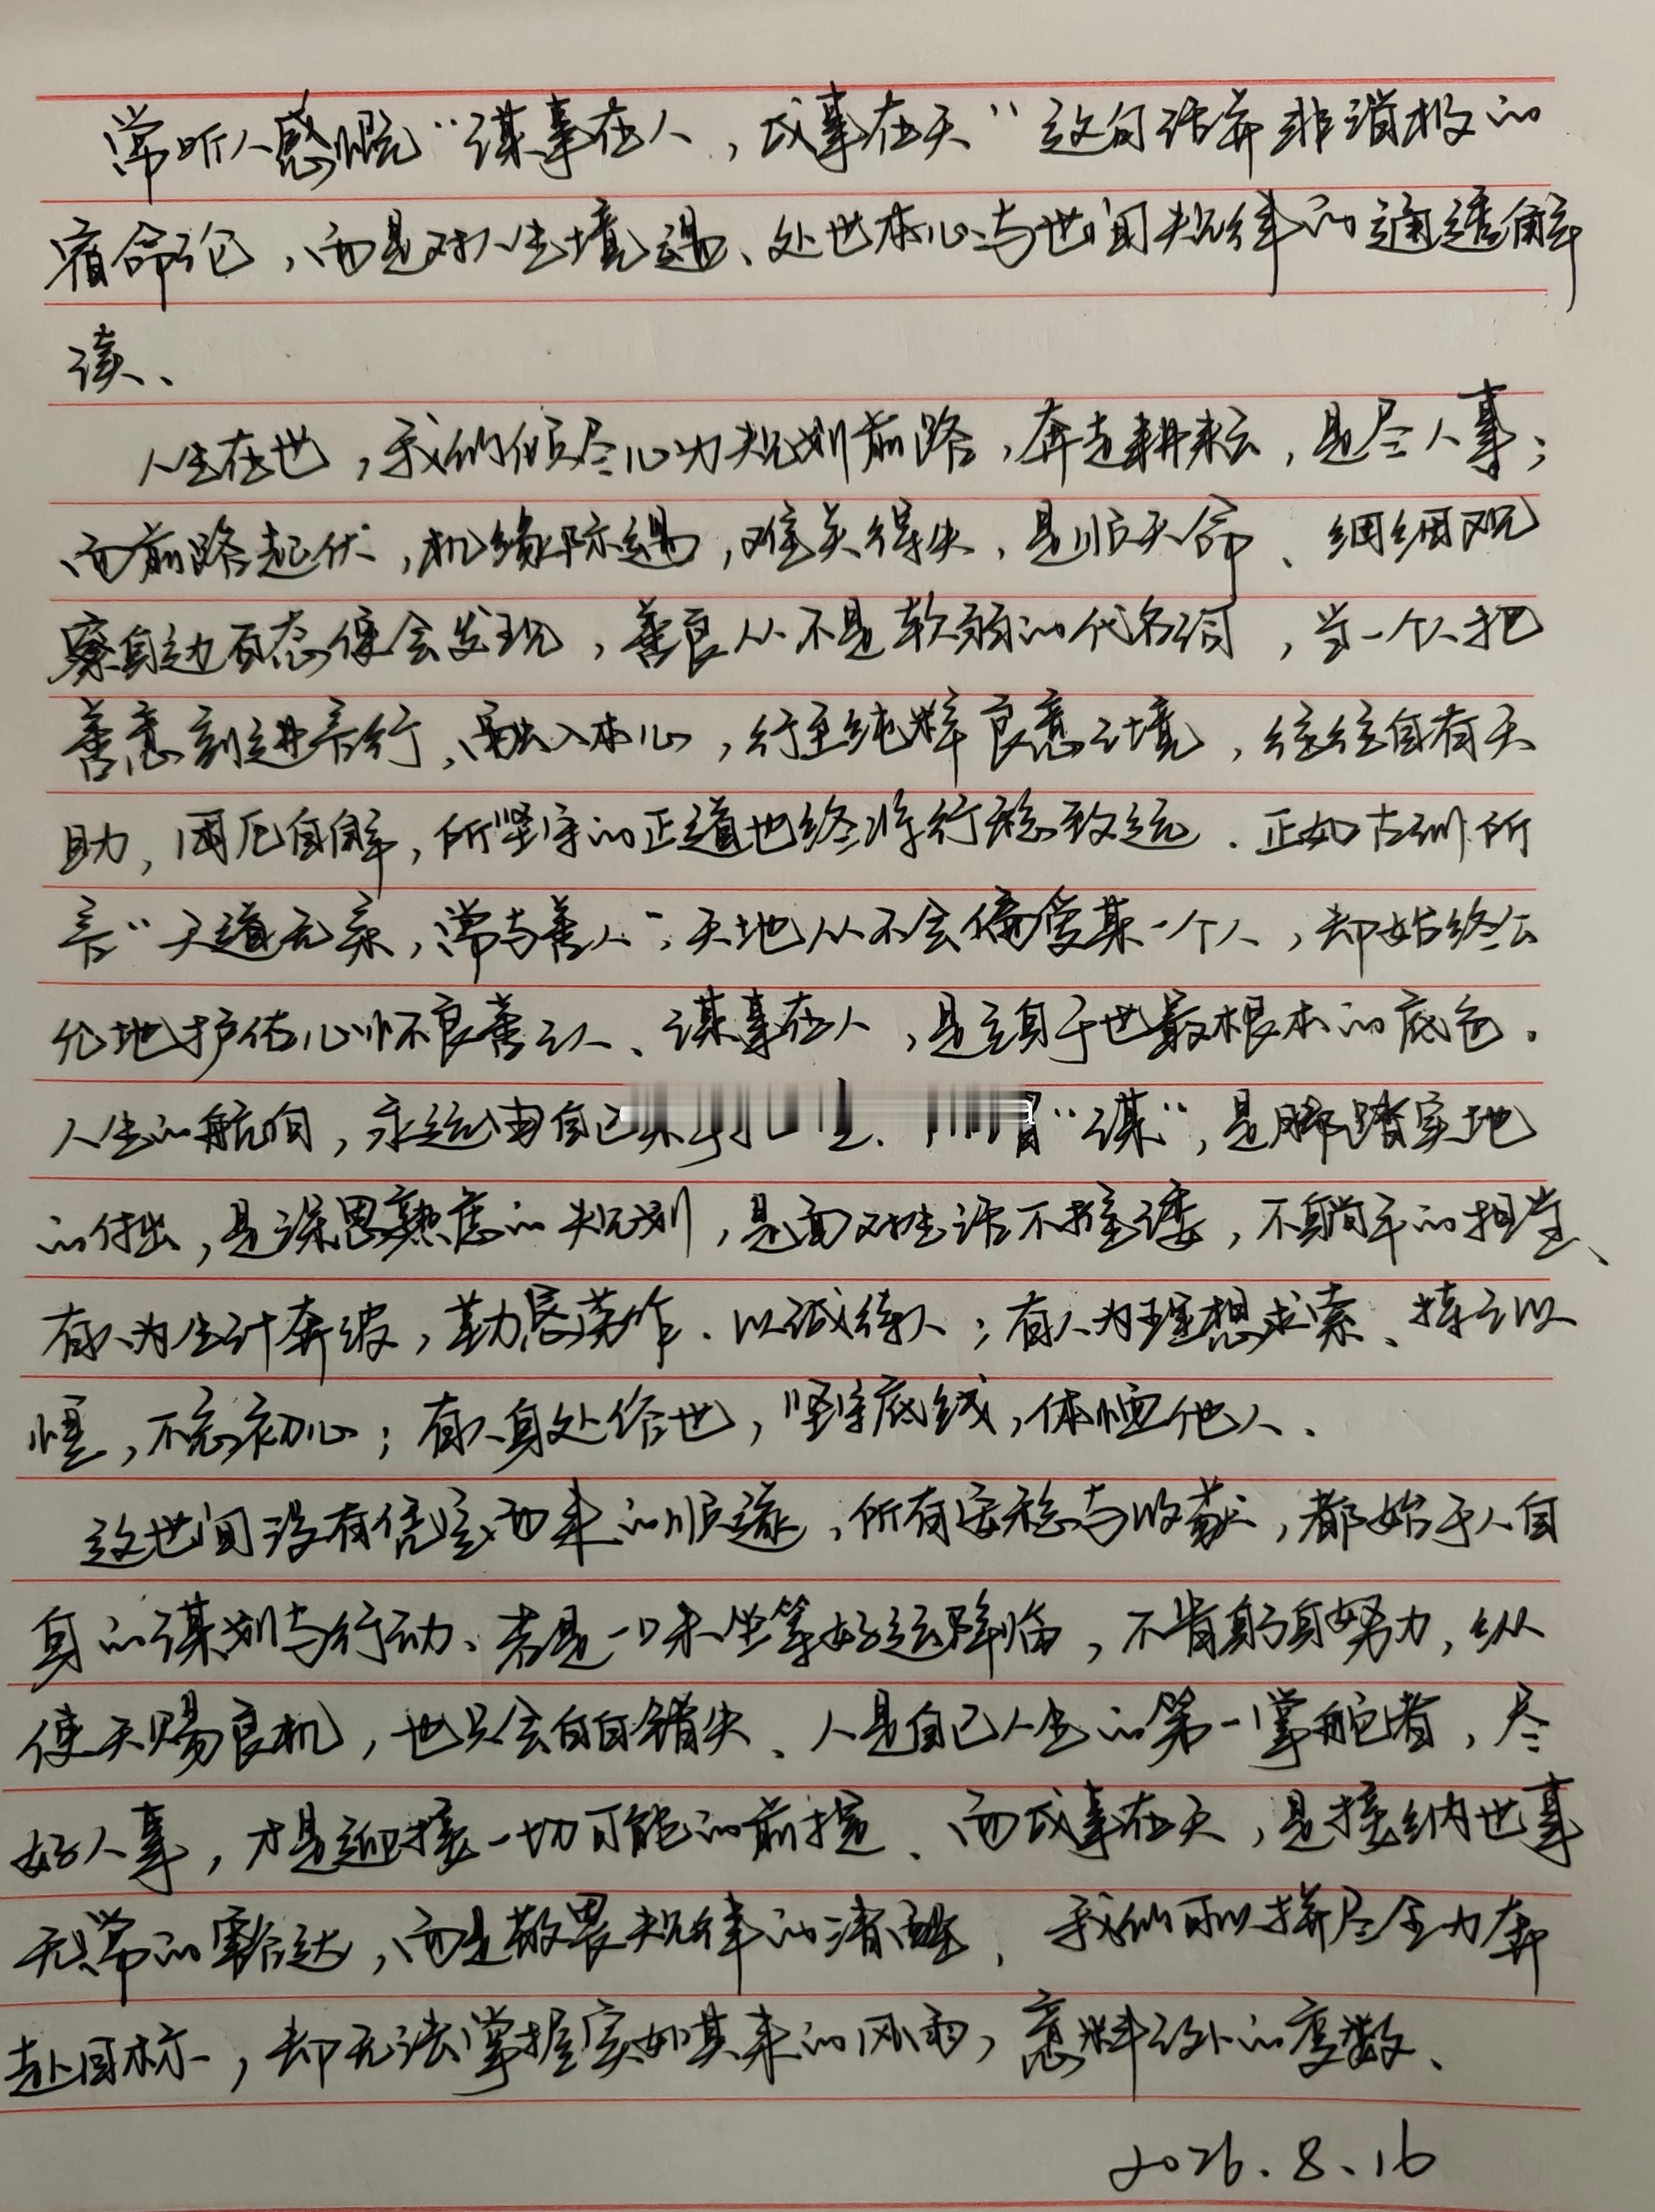 常听人感慨“谋事在人，成事在天”这句话并非消极的
宿命论，而是对人生境遇、处世本心与世间规律的通透解
读、
人生在世，我们倾尽心力规划前路，奔走耕耘，是尽人事；
而前路起伏，机缘际遇，难关得失，是顺天命、细细观
察身边百态便会发现，善良从不是软弱的代名词，当一个人把
善意刻进言行，融入本心，行至纯粹良意之境，往往自有天
助，困厄自解，所坚守的正道也终将行稳致远．正如古训所
言“天道无亲，常与善人”，天地从不会偏爱某一个人，却始终公
允地护佑心怀良善之人、谋事在人，是立身于世最根本的底色．
人生的航向，永远由自己 “谋”，是脚踏实地
的付出，是深思熟虑的规划，是面对生活不推诿，不躺平的担当、
有人为生计奔波，勤恳劳作．以诚待人；有人为理想求索、持之以
恒，不忘初心；有人身处俗世，坚守底线，体恤他人．
这世间没有凭空而来的顺遂，所有安稳与收获，都始于人自
身的谋划与行动、若是一味坐等好运降临，不肯躬身努力，纵
使天赐良机，也只会白白错失、人是自己人生的第一掌舵者，尽
好人事，才是迎接一切可能的前提、而成事在天，是接纳世事
无常的豁达，而是敬畏规律的清醒，我们可以拼尽全力奔
赴目标，却无法掌握突如其来的风雨，意料之外的变数、
2026.8.16